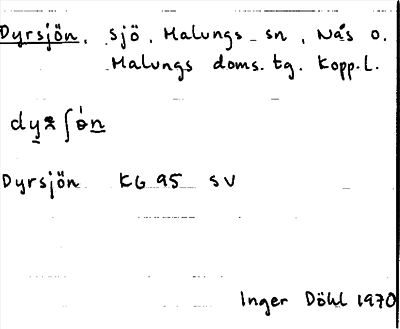 Dyrsjön, sjö, Malungs sn, Nås o.
Malungs doms. tg. Kopp. L.
Dyrsjön KG 95 SV
Inger Döhl 1970